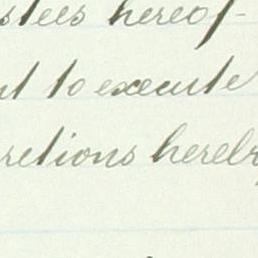 stees hereof-
ut to execute
retions hereby